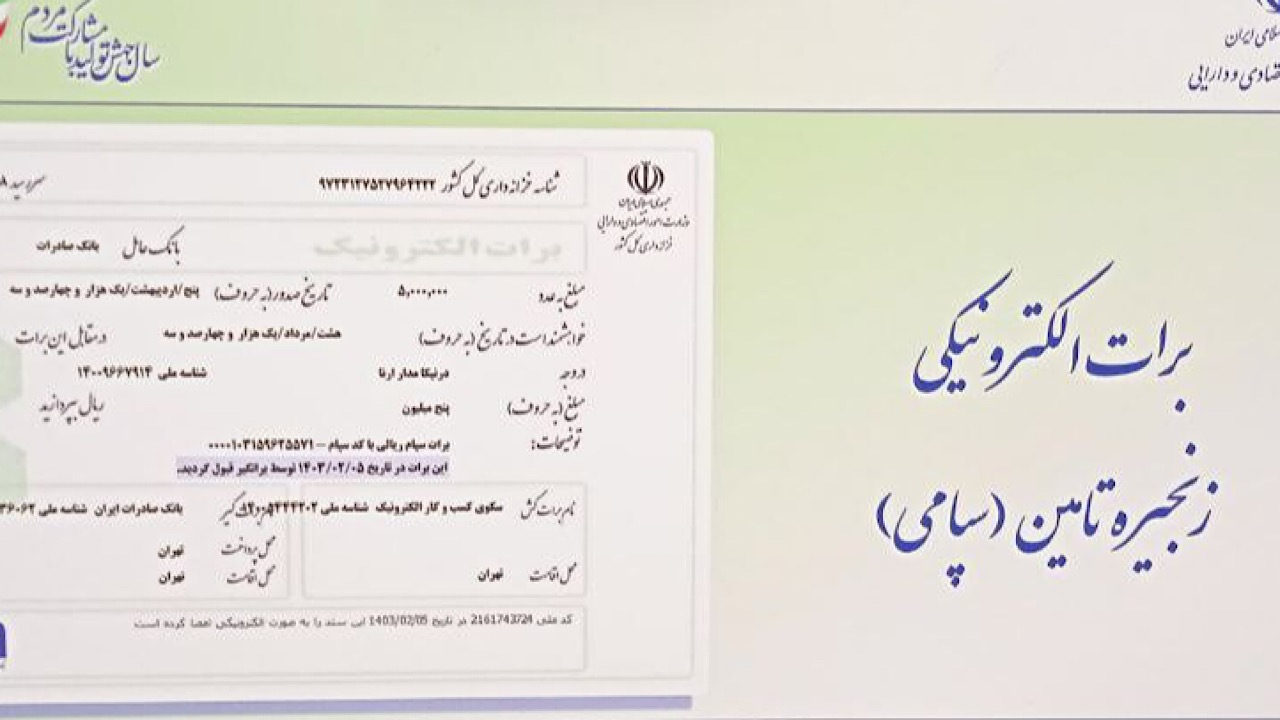 سال جهش تولید با مشارکت مردم
اسلامی ایران
اقتصادی و دارایی
برات الکترونیکی
زنجیره تامین (سپامی)
جمهوری اسلامی ایران
وزارت امور اقتصادی و دارایی
خزانه داری کل کشور
شناسه خزانه داری کل کشور ۹۷۲۳۱۲۷۵۲۷۹۶۴۲۲۲ سررسید
برات الکترونیک بانک عامل بانک صادرات
مبلغ به عدد ۵,۰۰۰,۰۰۰ تاریخ صدور(به حروف) پنج/اردیبهشت/یک هزار و چهارصد و سه
خواهشمند است در تاریخ (به حروف) هشت/مرداد/یک هزار و چهارصد و سه در مقابل این برات
در وجه درنیکا مدار ارنا شناسه ملی ۱۴۰۰۹۶۶۷۹۱۴
مبلغ (به حروف) پنج میلیون ریال بپردازید
توضیحات: برات سپام ریالی با کد سپام – ۰۰۰۰۱۰۳۱۵۹۶۲۵۵۷۱
این برات در تاریخ ۱۴۰۳/۰۲/۰۵ توسط براتگیر قبول گردید.
نام برات کش سکوی کسب و کار الکترونیک شناسه ملی
محل اقامت تهران
برات گیر بانک صادرات ایران شناسه ملی
محل پرداخت تهران
محل اقامت تهران
کد ملی 2161743724 در تاریخ 1403/02/05 این سند را به صورت الکترونیکی امضا کرده است